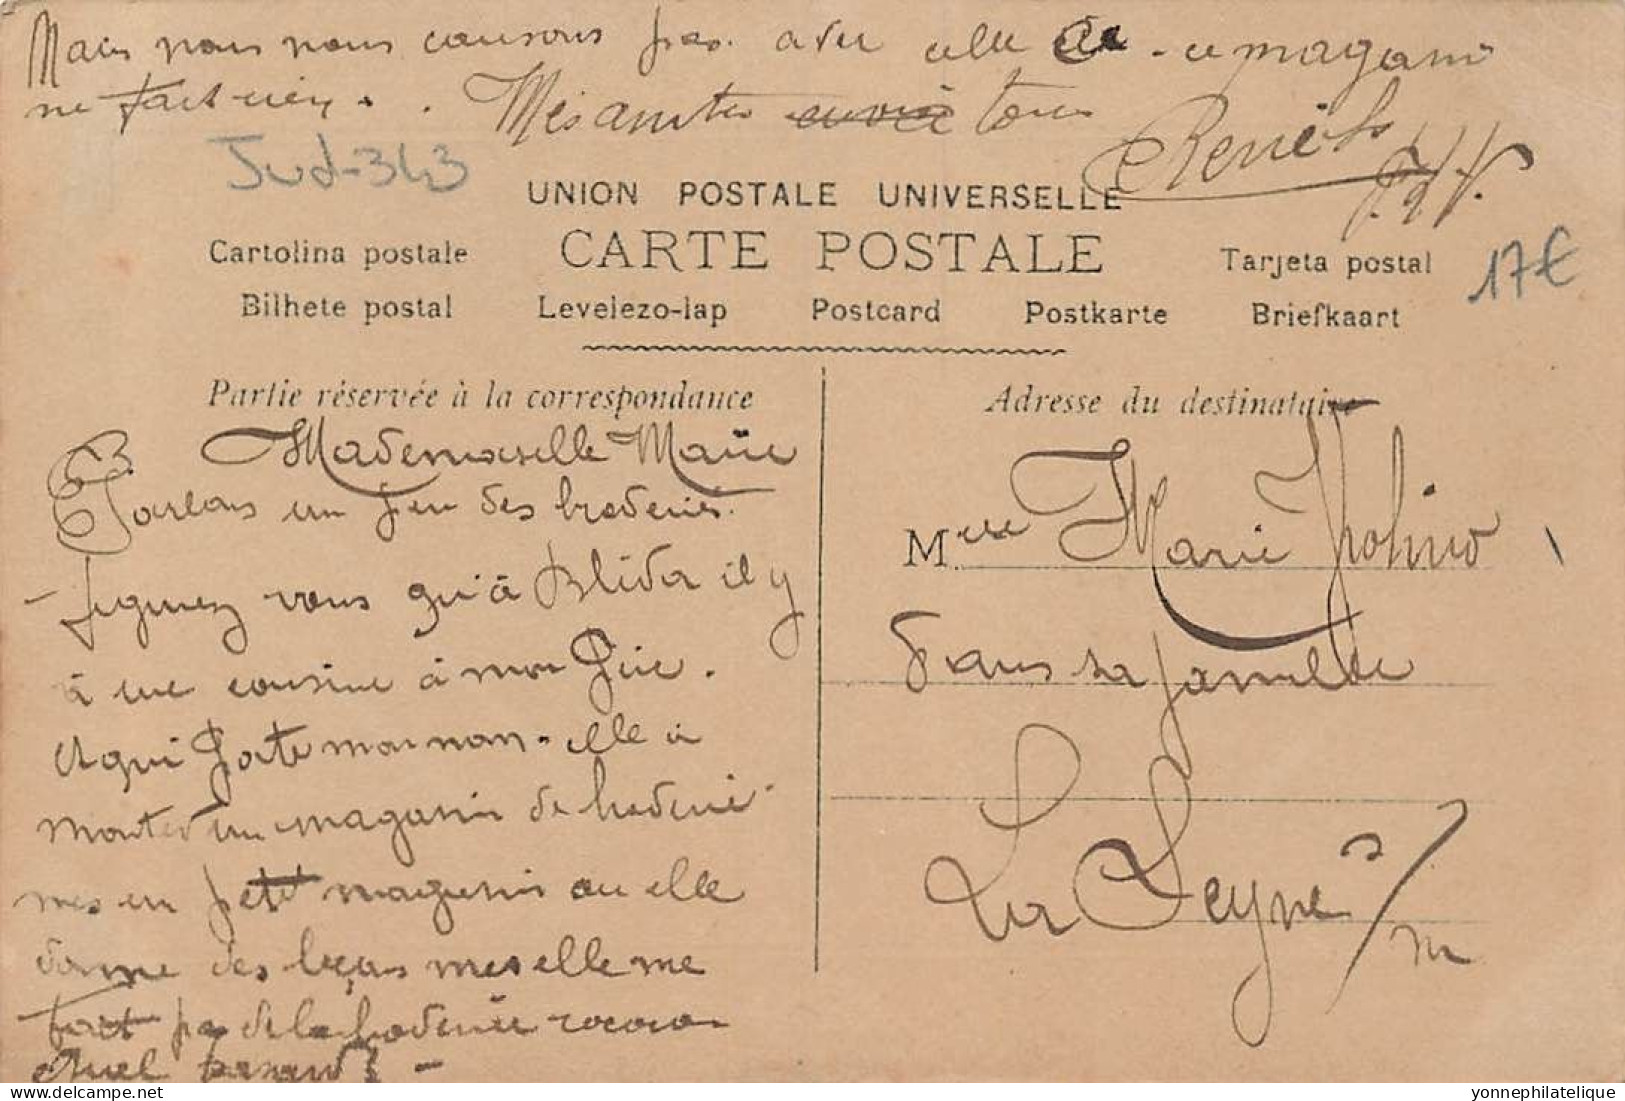 Mais nous nous causons pas. avec elle - ce magasin
ne fait rien. . Mes amities a tous
Jud-343
UNION POSTALE UNIVERSELLE
CARTE POSTALE
Cartolina postale
Tarjeta postal
17€
Bilhete postal
Levelezo-lap
Postcard
Postkarte
Briefkaart
Partie réservée à la correspondance
Mademoiselle Marie
Parlons un peu des broderies.
figurez vous qu'à Blida il y
à une cousine à mon Père.
et qui Porte mon nom. elle a
monter un magasin de broderie
mes un petit magasin ou elle
donne des leçons mes elle ne
fait pas de la broderie rococo
Adresse du destinataire
M.elle Marie
dans sa famille
La Seyne s/m
yonnephilatelique